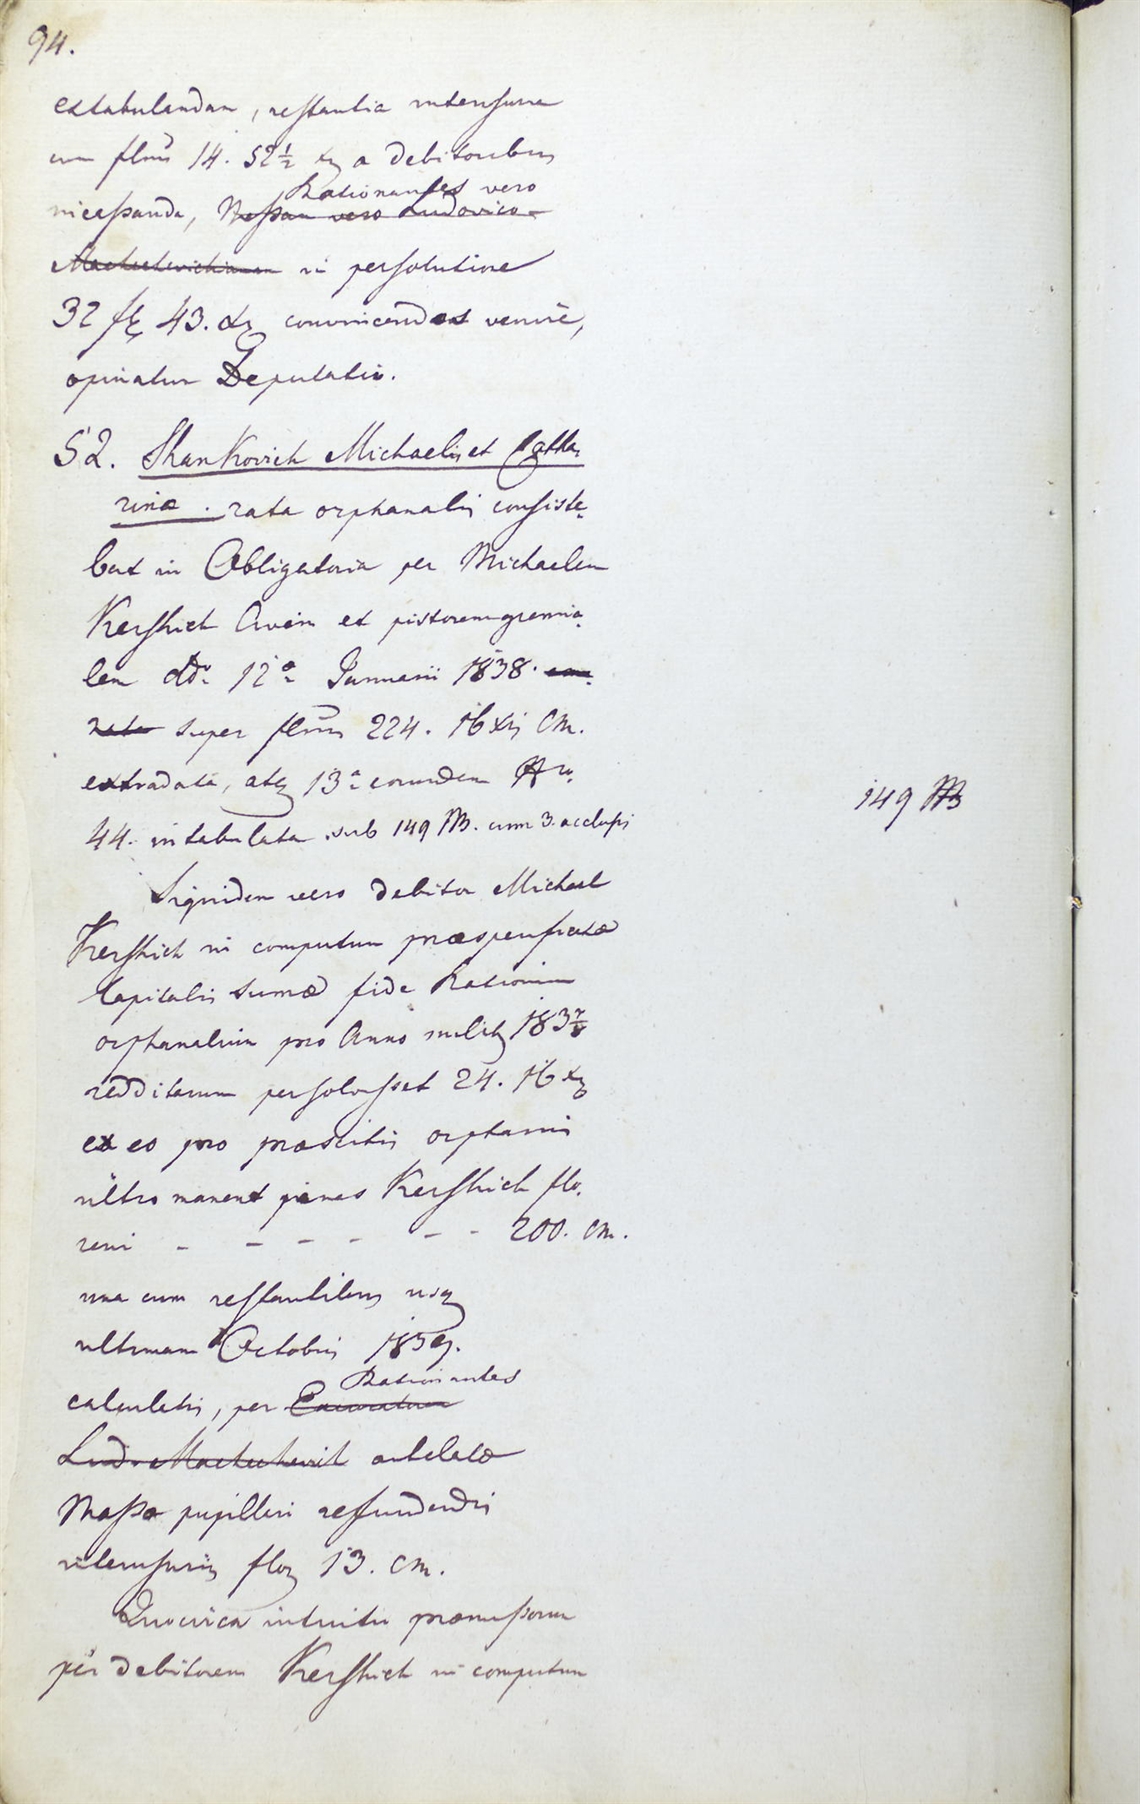 94.
extabulandam, restantia interusuria
cum flnis 14. 52½ xr a debitoribus
Rationantes vero
incassanda, Massam vero Ludovico-
Machekevichianam in persolutione
32 fl 43. xr convincendas venire,
opinatur Deputatio.
52. Shankovich Michaelis et Catha,
rinæ. rata orphanalis consiste,
bat in Obligatoria per Michaelem
Kershich Civem et pistorem gremia,
lem ddo 12a Januarii 1838.
super flnis 224. 16 xris CM.
extradata, atq 13a eorundem Nro
44. intabulata sub 149 BB. cum 3. acclusis
149 BB
Siquidem vero debitor Michael
Kershich in computum præspecificatæ
Capitalis Sumæ fide Rationum
orphanalium pro Anno milit 1837/8
redditarum persolvisset 24. 16 xr
ex eo pro præscitis orphanis
ultro manent penes Kershich flo,
reni - - - - - - 200. CM.
una cum restantibus usq
ultimam Octobris 1839.
Rationantes
calculatis, per Curatorem
Lud. Machekevich antelatæ
Massæ pupillari refundendis
interusuriis flor 13. CM.
Quocirca intuitu præmissorum
per debitorem Kershich in computum